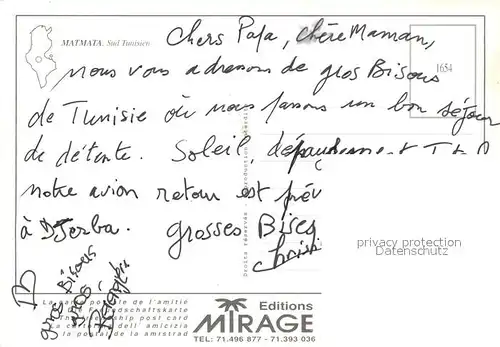 MATMATA. Sud Tunisien
Chers Papa, chère Maman,
1654
nous vous adressons de gros Bisous
de Tunisie où nous passons un bon séjour
de détente. Soleil, dépaysement
notre avion retour est prév
à Djerba. grosses Bises
privacy protection
Datenschutz
gros Bisous
gros
La carte postale de l'amitié
Die Freundschaftskarte
The friendship post card
La cartolina dell'amicizia
la postal de la amistad
Editions
MIRAGE
TEL: 71.496 877 - 71.393 036
Droits réservés - Reproduction interdite